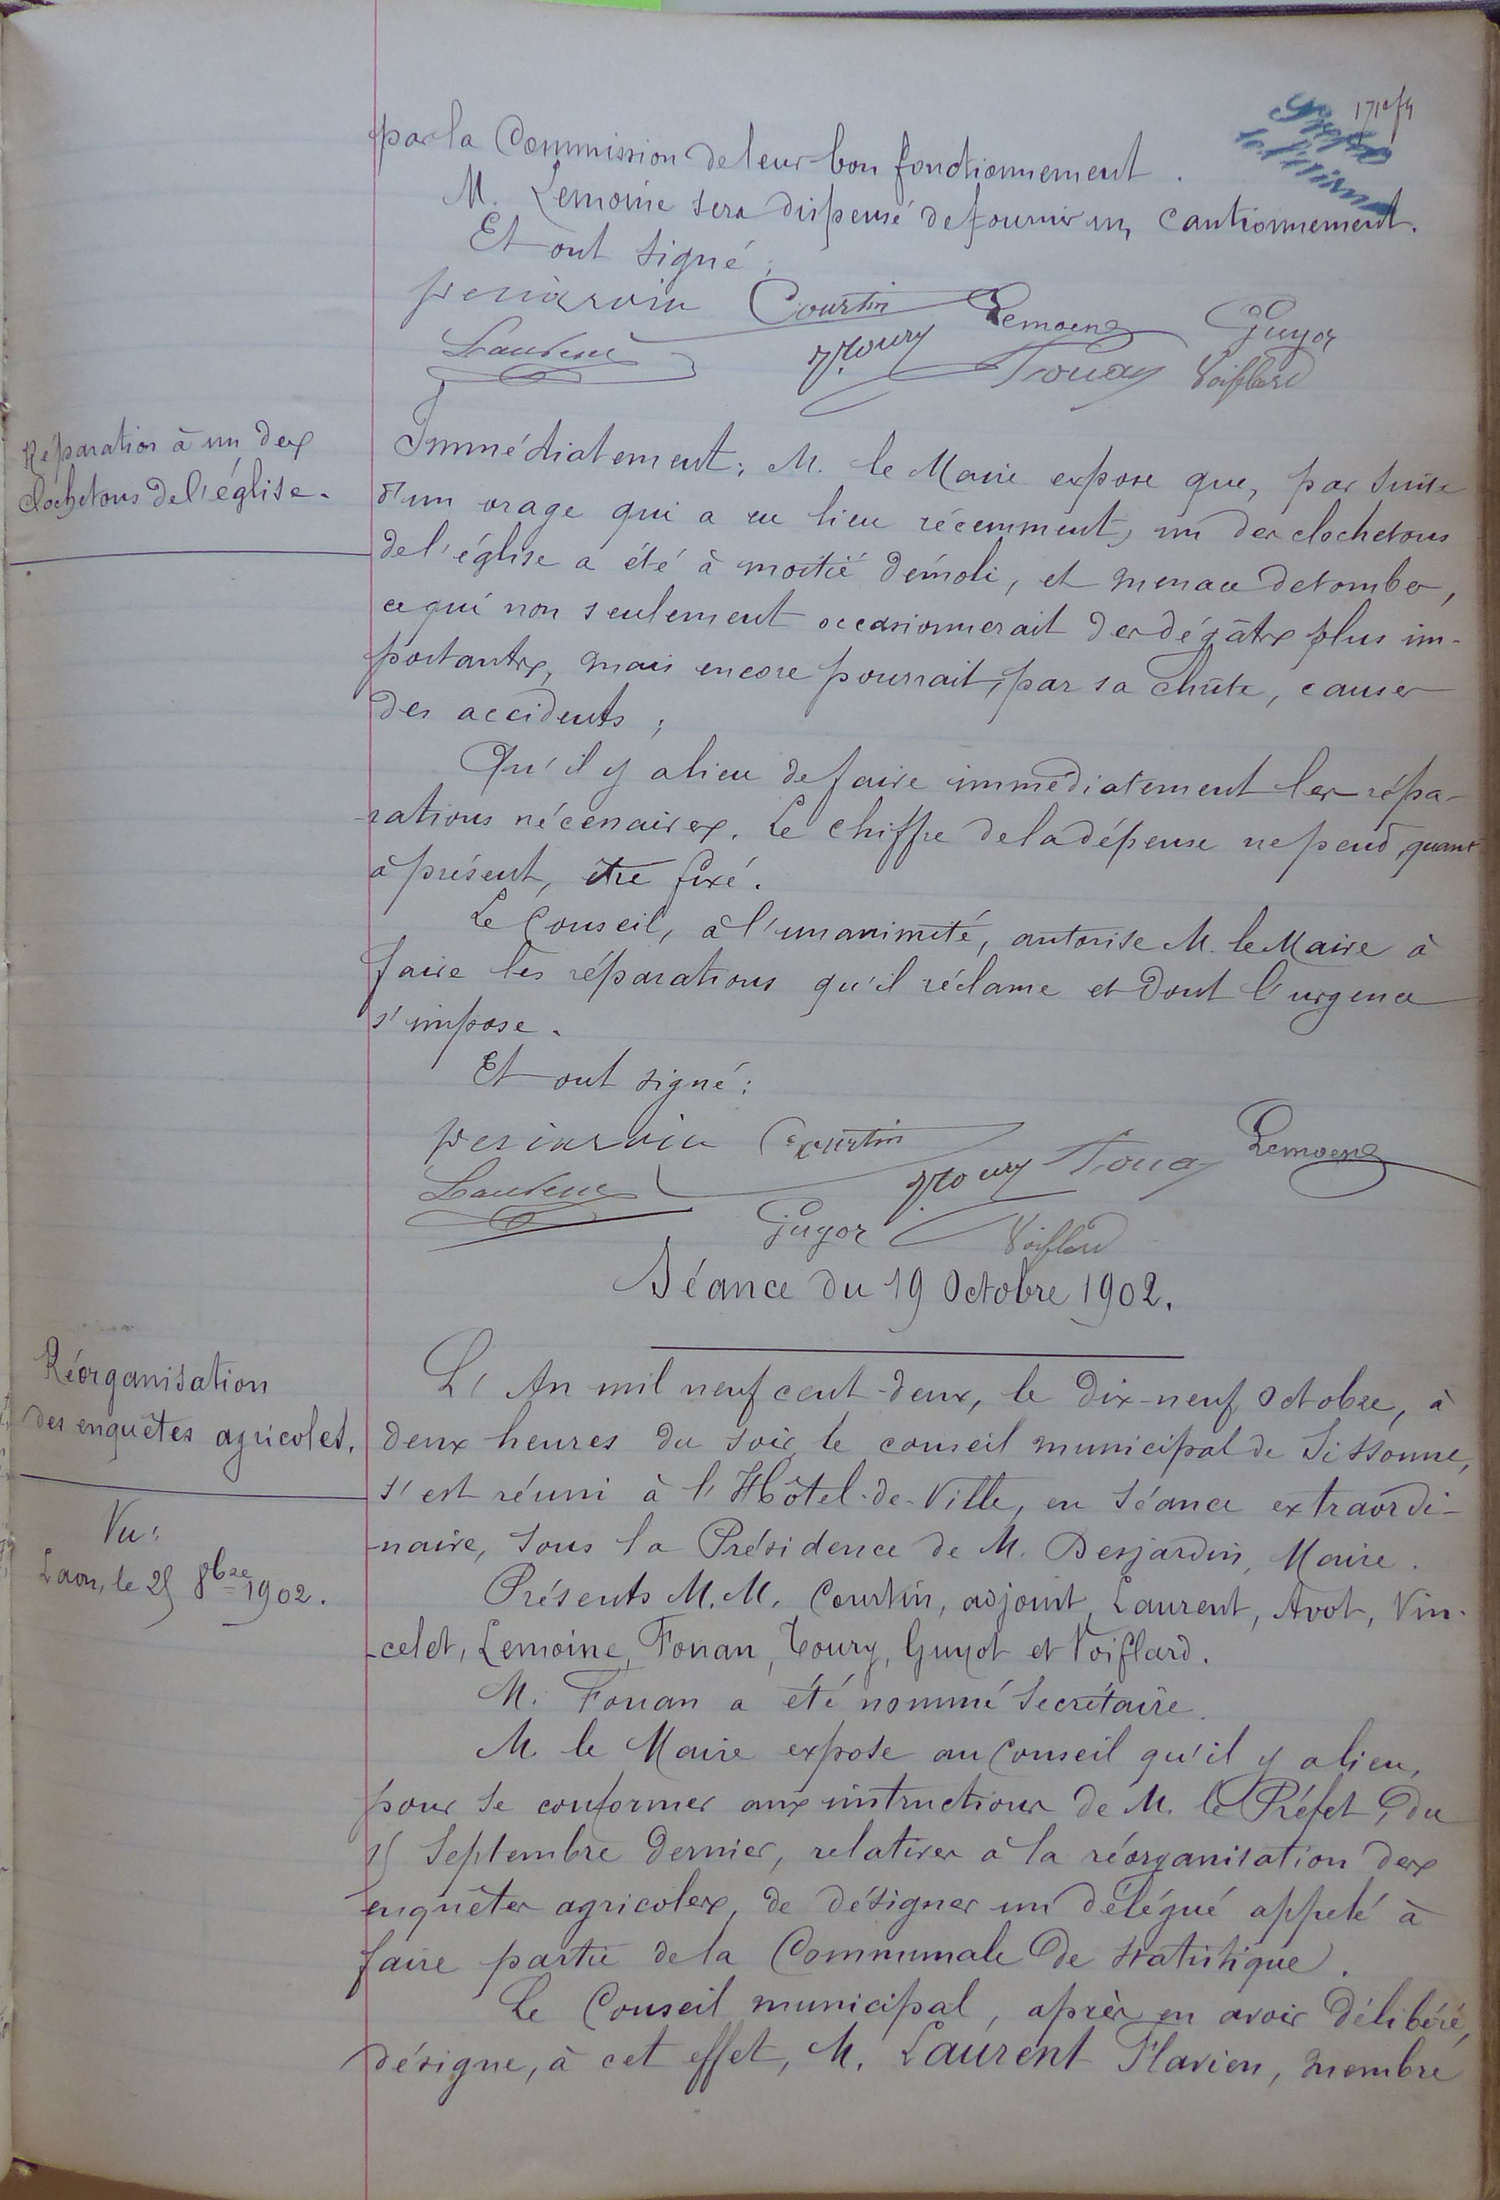 par la Commission de leur bon fonctionnement.
M. Lemoine sera dispensé de fournir un cautionnement.
Et ont signé;
Desjardin Courtin Lemoine Guyot
Laurent Toury Fouan Voiflard
Réparation à un des
clochetons de l'église.
Immédiatement; M. le Maire expose que, par suite
d'un orage qui a eu lieu récemment, un des clochetons
de l'église a été à moitié démoli, et menace de tomber,
ce qui non seulement occasionnerait des dégâts plus im-
portants, mais encore pourrait, par sa chûte, causer
des accidents;
Qu'il y a lieu de faire immédiatement les répa-
-rations nécessaires. Le chiffre de la dépense ne peut, quant
à présent, être fixé.
Le Conseil, à l'unanimité, autorise M. le Maire à
faire les réparations qu'il réclame et dont l'urgence
s'impose.
Et ont signé:
Desjardin Courtin Lemoine
Laurent Toury Fouan
Guyot Voiflard
Séance du 19 Octobre 1902.
Réorganisation
des enquêtes agricoles.
Vu:
Laon, le 25 8bre 1902.
L'An mil neuf cent-deux, le dix-neuf Octobre, à
deux heures du soir, le conseil municipal de Sissonne,
s'est réuni à l'Hôtel-de-Ville, en séance extraordi-
-naire, sous la Présidence de M. Desjardin, Maire.
Présents M.M. Courtin, adjoint, Laurent, Avot, Vin-
-celet, Lemoine, Fouan, Toury, Guyot et Voiflard.
M. Fouan a été nommé Secrétaire.
M. le Maire expose au Conseil qu'il y a lieu,
pour se conformer aux instructions de M. le Préfet, du
15 Septembre dernier, relatives à la réorganisation des
enquêtes agricoles, de désigner un délégué appelé à
faire partie de la Communale de statistique.
Le Conseil municipal, après en avoir délibéré,
désigne, à cet effet, M. Laurent Flavien, membre